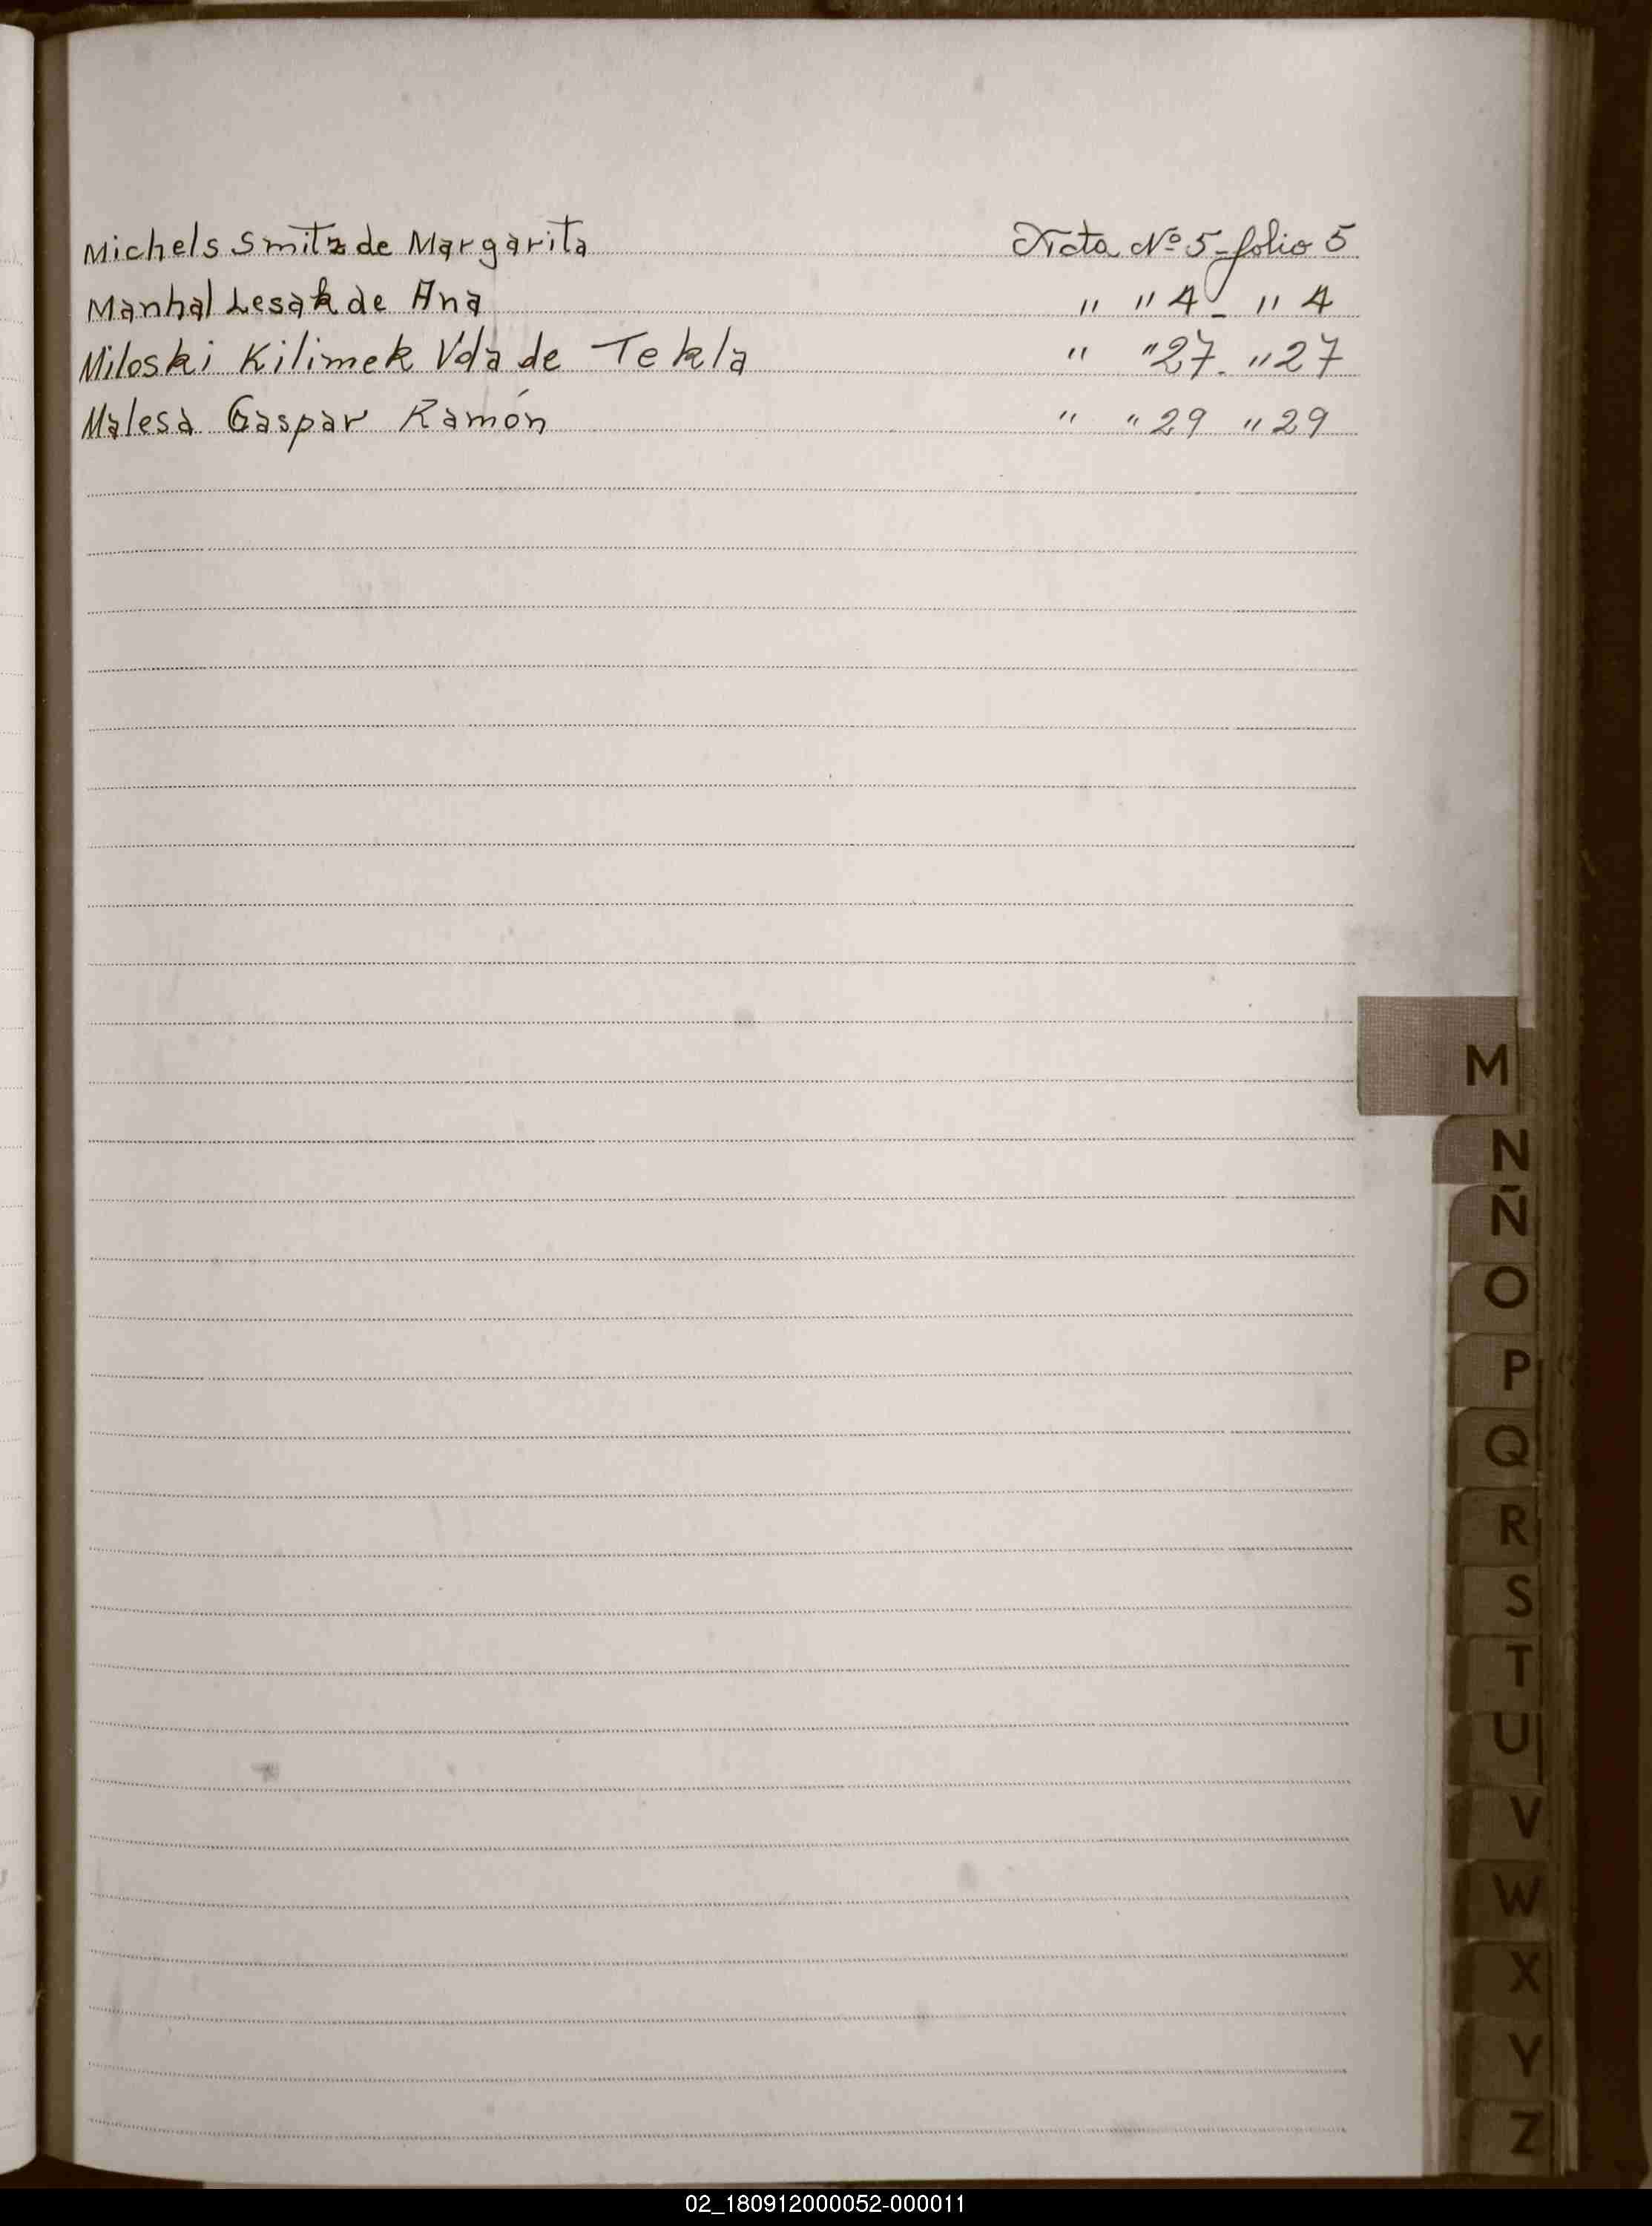 Michels Smitz de Margarita Acta Nº 5 - folio 5
Manhal Lesak de Ana " " 4 - " 4
Miloski Kilimek Vda de Tekla " " 27. " 27
Malesa Gaspar Ramón " " 29 " 29
M
N
Ñ
O
P
Q
R
S
T
U
V
W
X
Y
Z
02_180912000052-000011